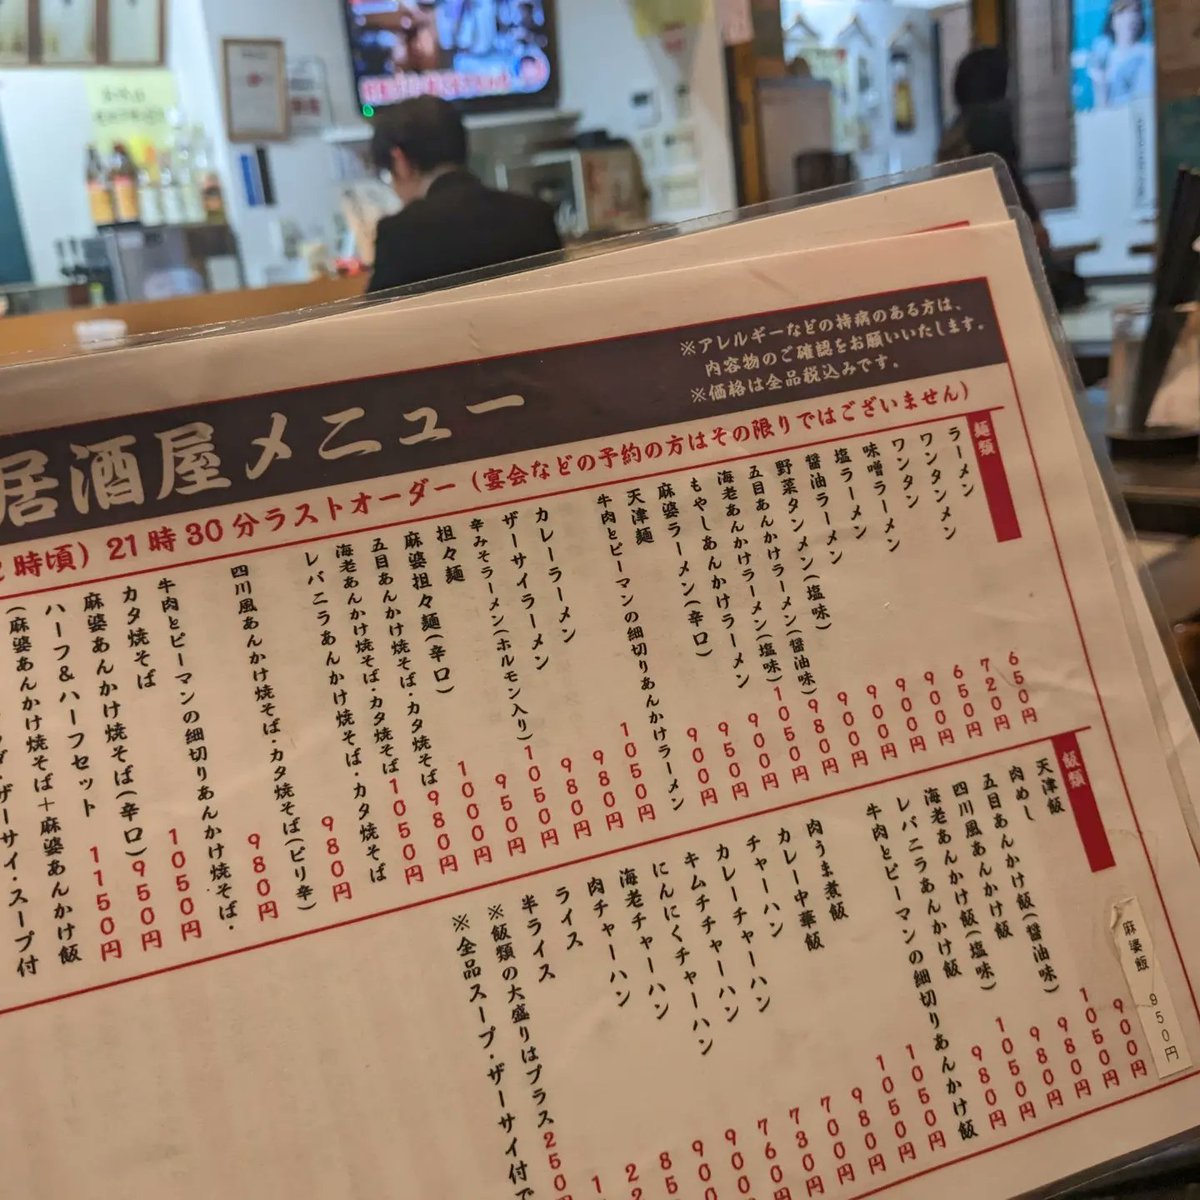 ※アレルギーなどの持病のある方は、
内容物のご確認をお願いいたします。
※価格は全品税込みです。
居酒屋メニュー
時頃) 21時30分ラストオーダー (宴会などの予約の方はその限りではございません)
麺類
ラーメン 650円
ワンタンメン 720円
ワンタン 650円
味噌ラーメン 900円
塩ラーメン 900円
醤油ラーメン 900円
野菜タンメン(塩味) 900円
五目あんかけラーメン(醤油味) 980円
海老あんかけラーメン(塩味) 1050円
もやしあんかけラーメン 900円
麻婆ラーメン(辛口) 950円
天津麺 900円
牛肉とピーマンの細切りあんかけラーメン 1050円
カレーラーメン 980円
ザーサイラーメン 980円
辛みそラーメン(ホルモン入り) 1050円
担々麺 950円
麻婆担々麺(辛口) 1000円
五目あんかけ焼そば・カタ焼そば 980円
海老あんかけ焼そば・カタ焼そば 1050円
レバニラあんかけ焼そば・カタ焼そば 980円
四川風あんかけ焼そば・カタ焼そば(ピリ辛) 980円
牛肉とピーマンの細切りあんかけ焼そば・
カタ焼そば 1050円
麻婆あんかけ焼そば(辛口) 950円
ハーフ&ハーフセット 1150円
(麻婆あんかけ焼そば+麻婆あんかけ飯
ザーサイ・スープ付
飯類
麻婆飯 950円
天津飯 900円
肉めし 1050円
五目あんかけ飯(醤油味) 980円
四川風あんかけ飯 980円
海老あんかけ飯(塩味) 1050円
レバニラあんかけ飯 980円
牛肉とピーマンの細切りあんかけ飯 1050円
肉うま煮飯 1050円
カレー中華飯 980円
チャーハン 700円
カレーチャーハン 730円
キムチチャーハン 760円
にんにくチャーハン
海老チャーハン
肉チャーハン
ライス
半ライス
※飯類の大盛りはプラス250円
※全品スープ・ザーサイ付で